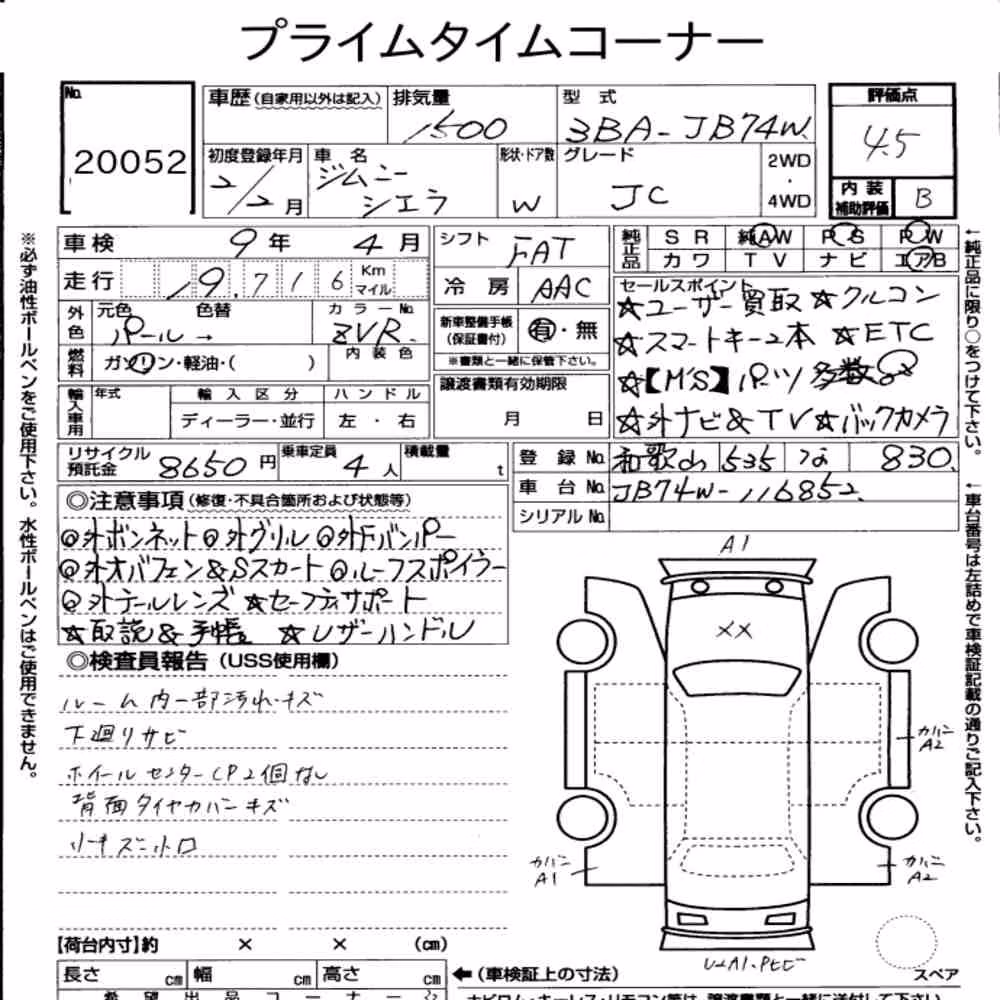 プライムタイムコーナー
No. 20052
車歴(自家用以外は記入) 排気量 1500
型式 3BA-JB74W
評価点 4.5
内装補助評価 B
初度登録年月 2/2月
車名 ジムニーシエラ
形状・ドア数 W
グレード JC
2WD・4WD
車検 9年 4月
シフト FAT
純正品 SR 純AW PS PW
カワ TV ナビ エアB
走行 19,716 Km マイル
冷房 AAC
外色 元色 パール→ 色替
カラーNo. ZVR
燃料 ガソリン・軽油・( )
内装色
新車整備手帳(保証書付) 有・無
※書類と一緒に保管下さい。
セールスポイント
★ユーザー買取 ★クルコン
★スマートキー2本 ★ETC
★【M'S】パーツ多数
★外ナビ&TV★バックカメラ
輸入車用 年式 輸入区分 ハンドル
ディーラー・並行 左・右
譲渡書類有効期限
月 日
リサイクル預託金 8650円
乗車定員 4人
積載量 t
登録No. 和歌山 535 830
車台No. JB74W-116852
シリアルNo.
◎注意事項(修復・不具合箇所および状態等)
◎外ボンネット◎外グリル◎外Fバンパー
◎外オバフェン&Sスカート◎ルーフスポイラー
◎外テールレンズ ★セーフティサポート
★取説&手帳 ★レザーハンドル
◎検査員報告(USS使用欄)
ルーム内一部汚れ・キズ
下廻りサビ
ホイールセンターCP2個なし
背面タイヤカバーキズ
小キズ小凹
A1
XX
カバー A2
カバー A1
カバー A2
スペア
【荷台内寸】約 × × (cm)
長さ cm 幅 cm 高さ cm
←(車検証上の寸法)
※必ず油性ボールペンをご使用下さい。水性ボールペンはご使用できません。
←純正品に限り○をつけて下さい。
←車台番号は左詰めで車検証記載の通りご記入下さい。